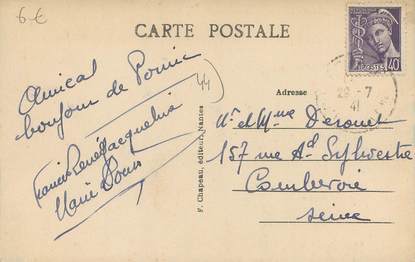 6 €
CARTE POSTALE
POSTES 40
Amical
bonjour de Pornic
44
Francis René Jacqueline
Marie
Adresse
29 - 7
41
Mr et Mme Derouet
157 rue Ad Sylvestre
Courbevoie
Seine
F. Chapeau, éditeur, Nantes